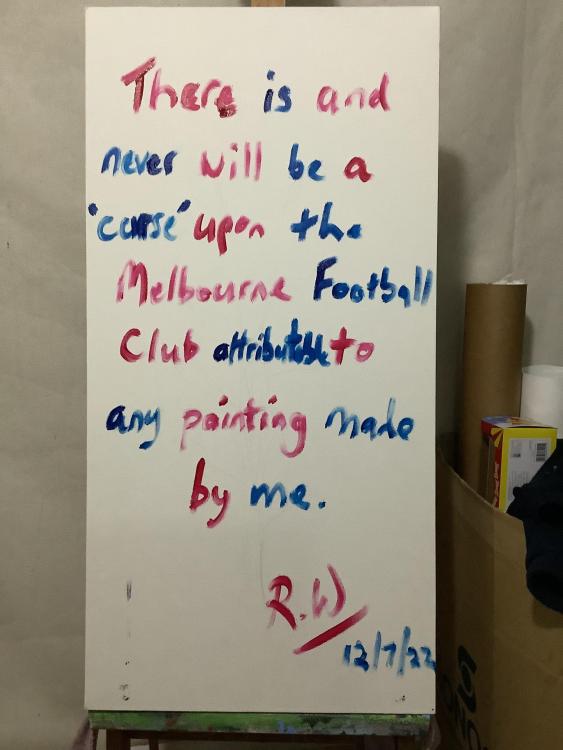 There is and
never will be a
"curse" upon the
Melbourne Football
Club attributable to
any painting made
by me.
R.W
12/7/22